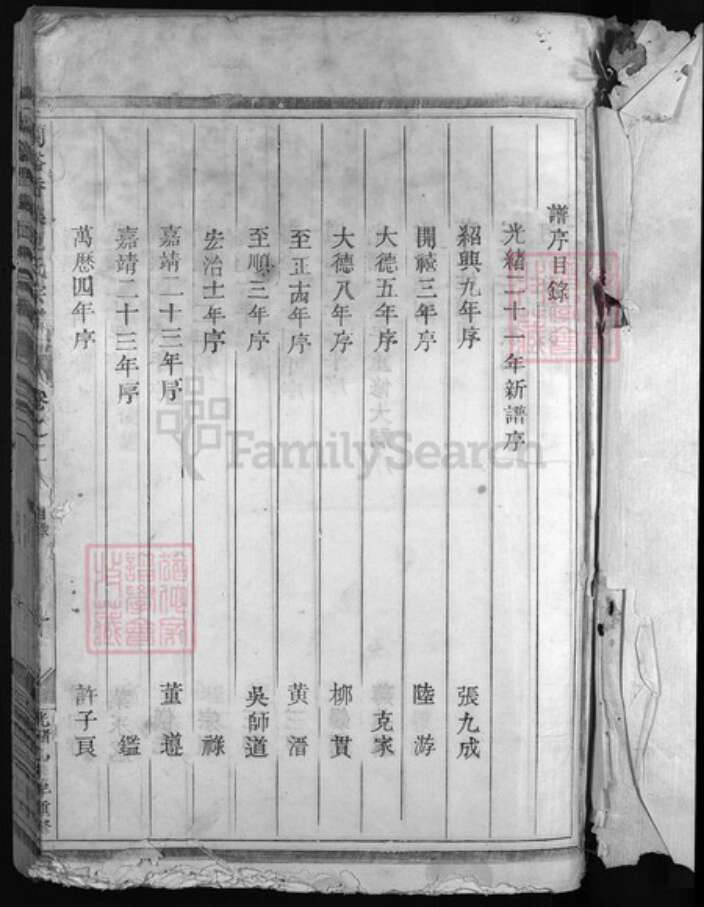 譜序目錄
光緒三十一年新譜序
紹興九年序 張九成
開禧三年序 陸游
大德五年序 克家
大德八年序 柳貫
至正十四年序 黃溍
至順三年序 吳師道
宏治十一年序 祿
嘉靖二十三年序 董遵
嘉靖二十三年序 鑑
萬歷四年序 許子良
FamilySearch